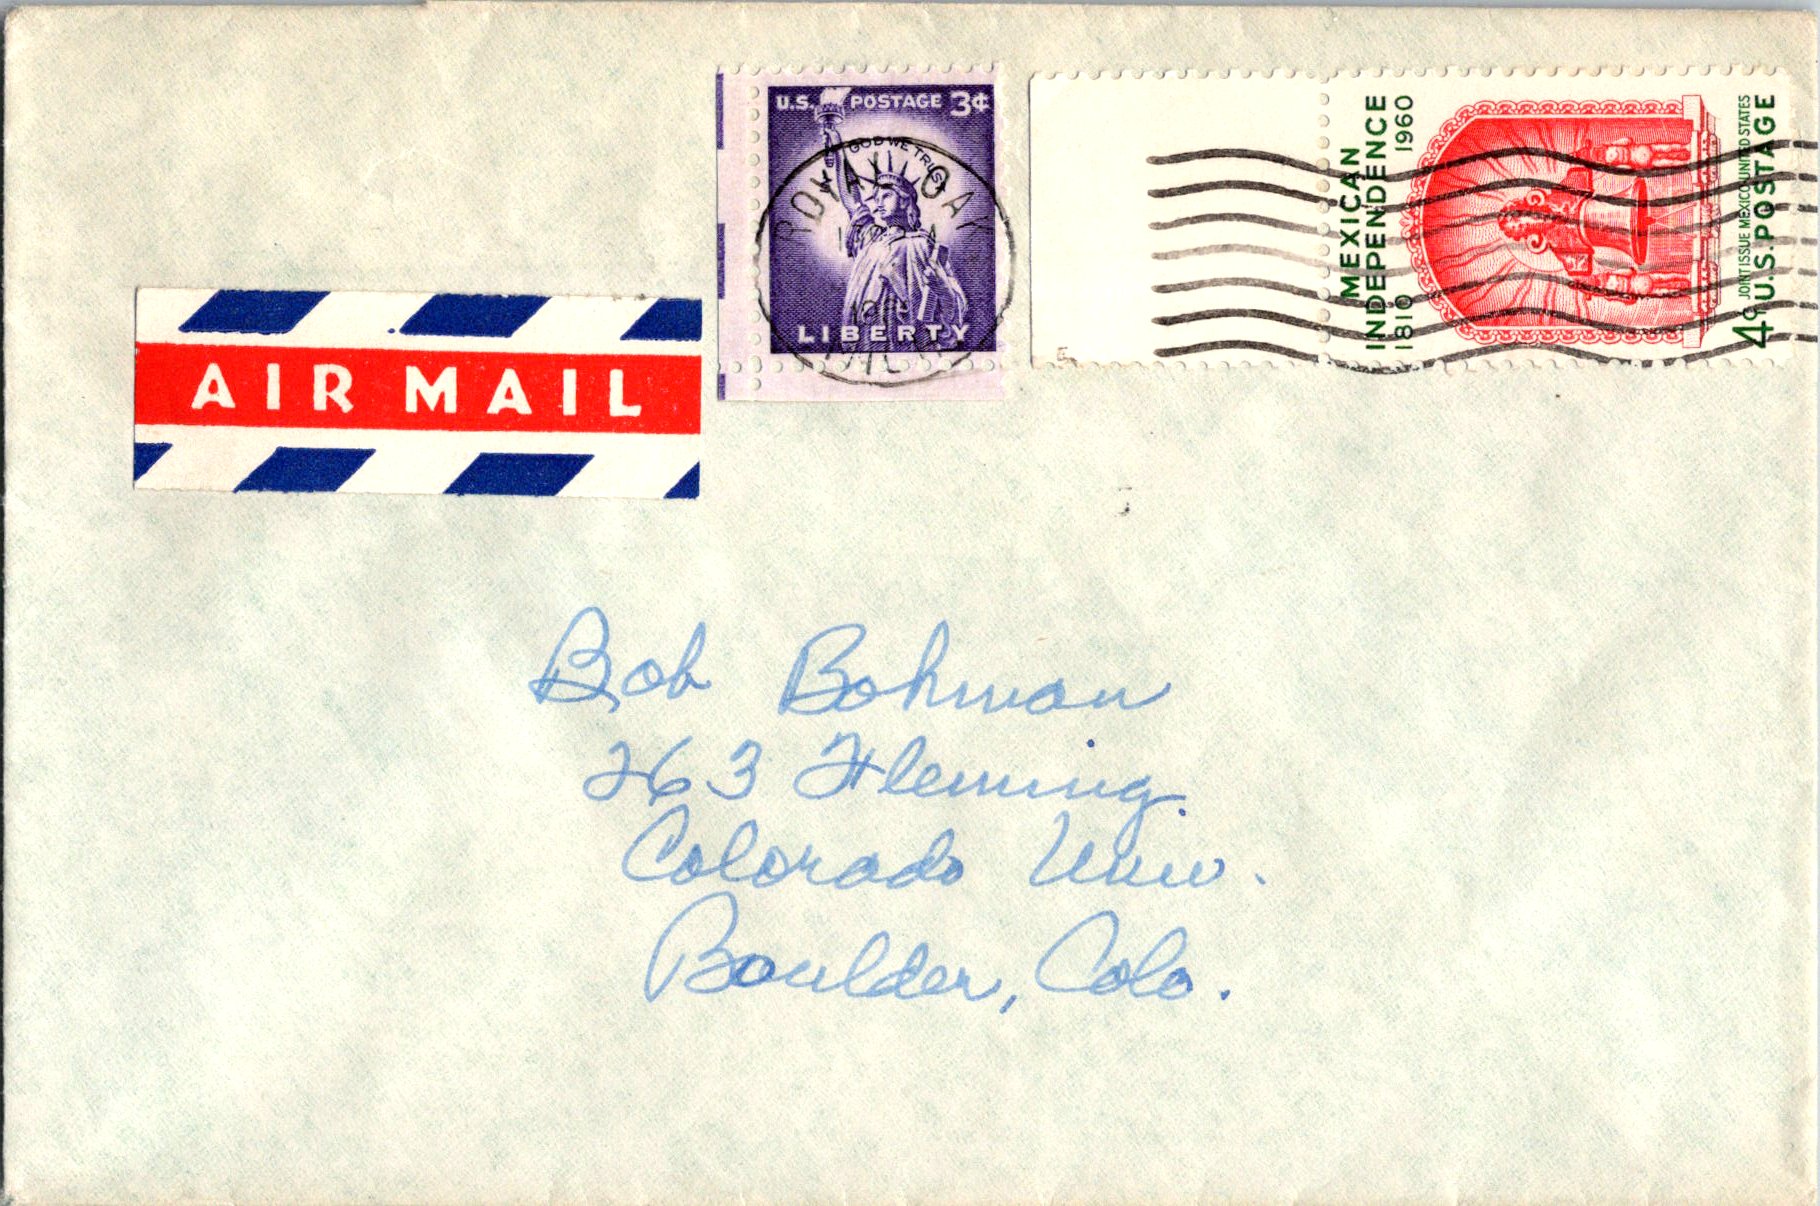 U.S. POSTAGE 3¢
IN GOD WE TRUST
LIBERTY
ROYAL OAK
MEXICAN
INDEPENDENCE
1810 1960
JOINT ISSUE MEXICO-UNITED STATES
4¢ U.S. POSTAGE
AIR MAIL
Bob Bohman
263 Fleming.
Colorado Univ.
Boulder, Colo.